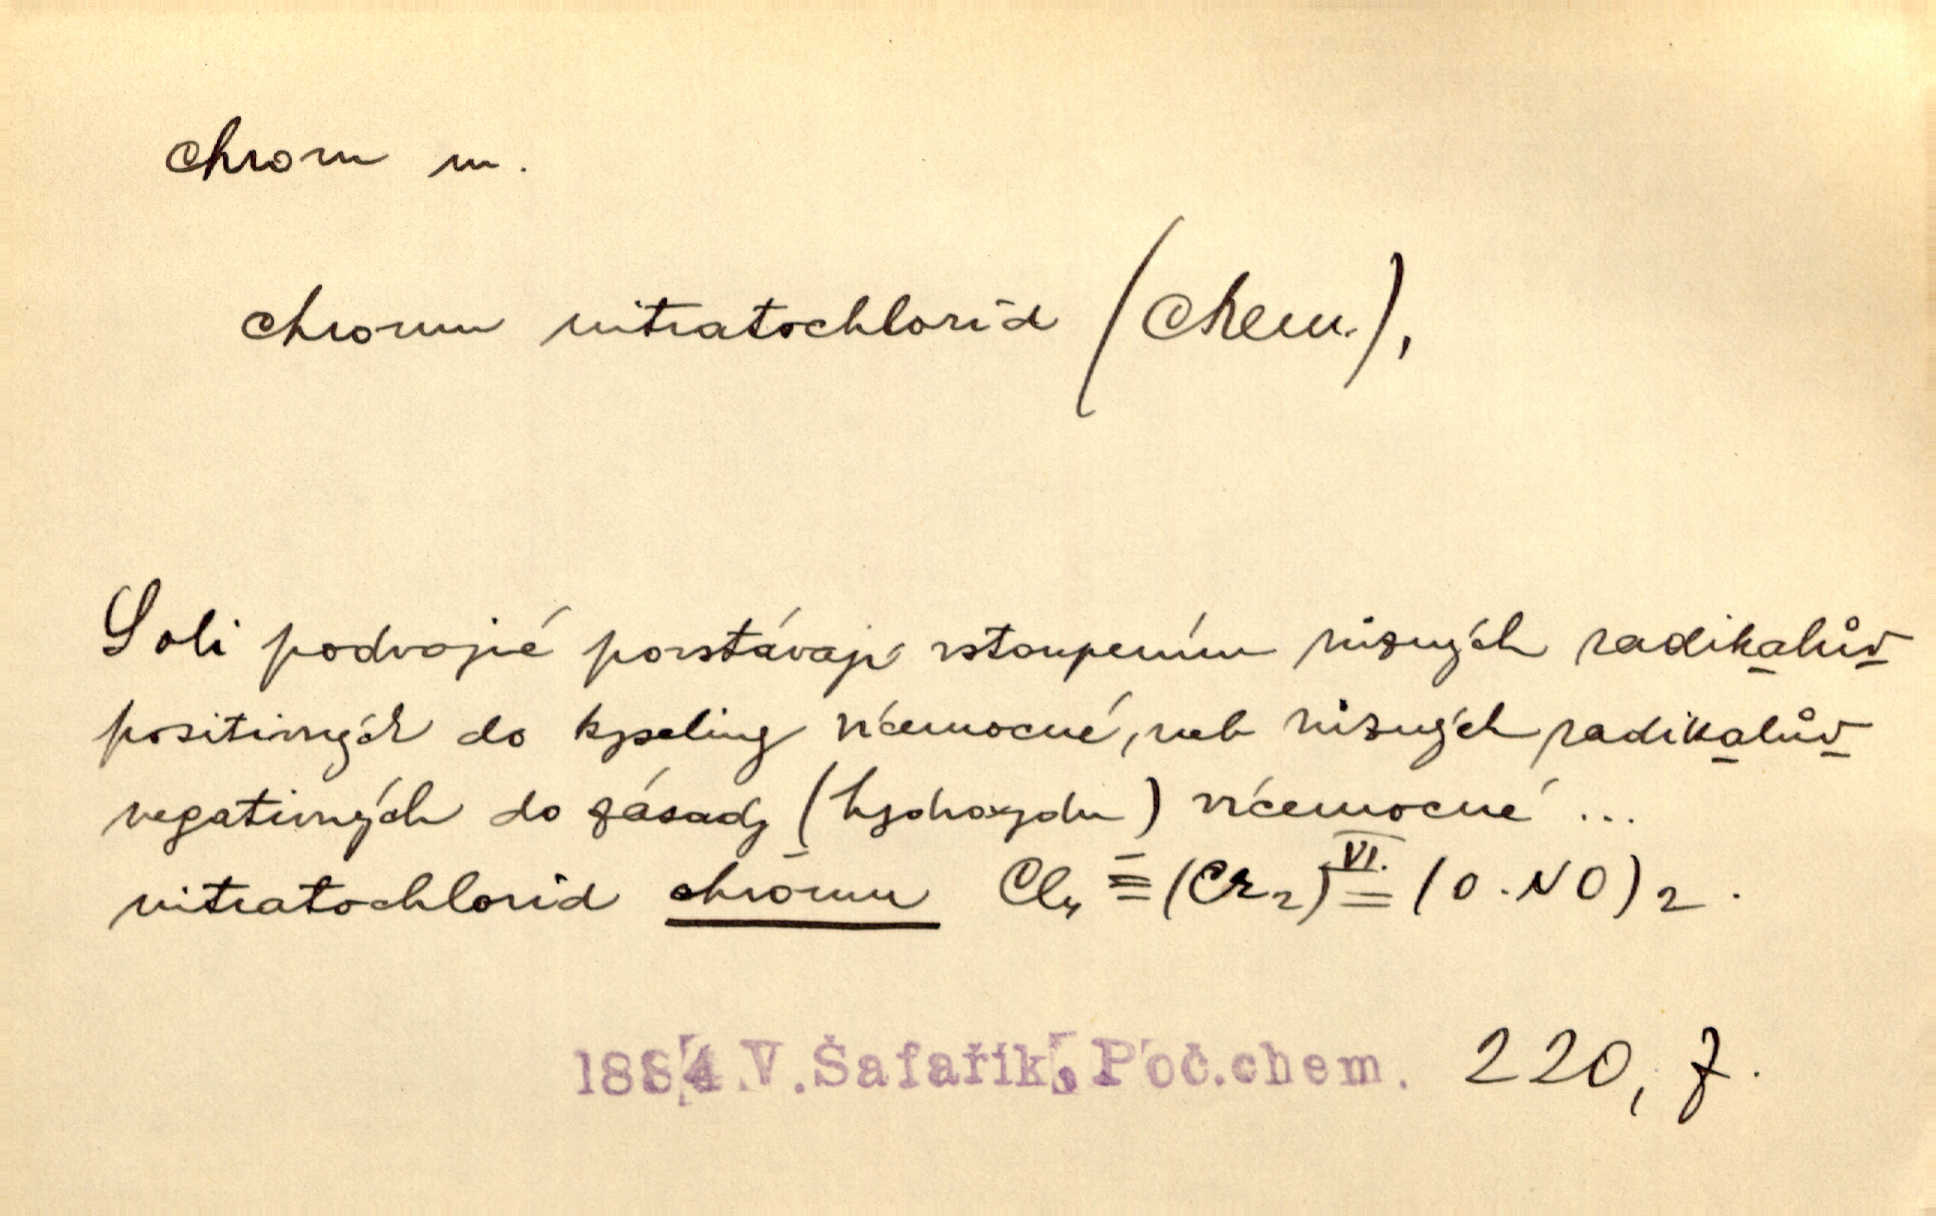 chrom m.
chromu nitratochlorid (Chem.),
Soli podvojné povstávají vstoupením různých radikalův
positivných do kyseliny vícemocné, neb různých radikalův
negativných do zásady (hydroxydu) vícemocné ...
nitratochlorid chrómu Cl₄ ≣ (Cr₂)VI. = (O.NO)₂.
1884 V. Šafařík, Poč.chem. 220, 7.